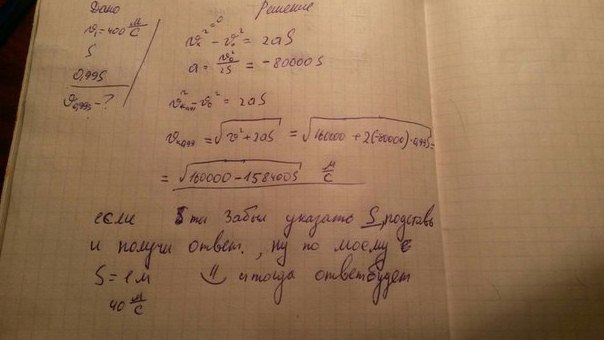 Дано
Решение
v₁ = 400 м/с
S
0,99S
v₀,₉₉s - ?
vₖ² - v₀² = 2aS
a = v₀²/2S = -80000 S
vₖ₀,₉₉² - v₀² = 2aS
vₖ₀,₉₉ = √(v² + 2aS) = √(160000 + 2(-80000)·0,99S) =
= √(160000 - 158400S) м/с
если ты забыл указать S, подставь
и получи ответ., ну по моему
S = 1 м и тогда ответ будет
40 м/с